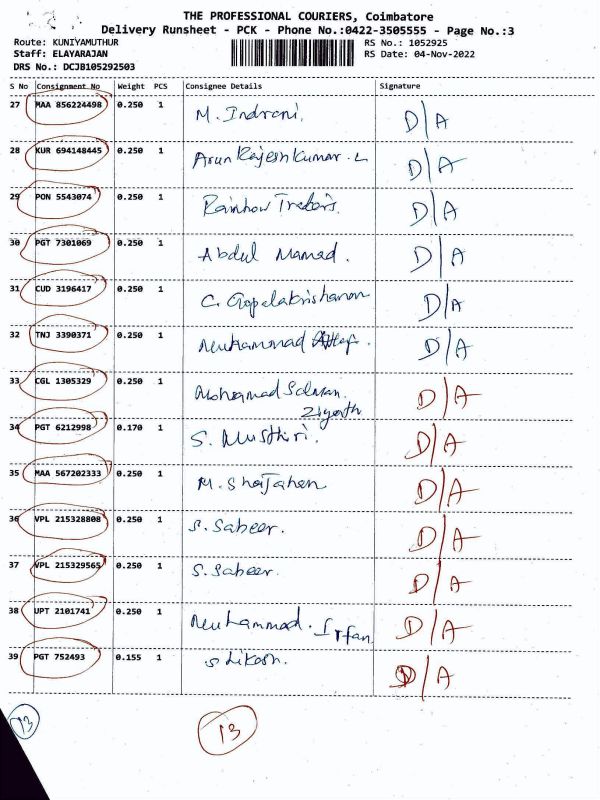 THE PROFESSIONAL COURIERS, Coimbatore
Delivery Runsheet - PCK - Phone No.:0422-3505555 - Page No.:3
Route: KUNIYAMUTHUR
RS No.: 1052925
Staff: ELAYARAJAN
RS Date: 04-Nov-2022
DRS No.: DCJB105292503
S No Consignment No Weight PCS Consignee Details Signature
27 MAA 856224498 0.250 1 M. Indrani. D/A
28 KUR 694148445 0.250 1 Arun Rajesh Kumar. L D/A
29 PON 5543074 0.250 1 Rainbow D/A
30 PGT 7301069 0.250 1 Abdul Mamad. D/A
31 CUD 3196417 0.250 1 C. Gopalakrishanan D/A
32 TNJ 3390371 0.250 1 Muhammad D/A
33 CGL 1305329 0.250 1 Mohammad Salman. D/A
34 PGT 6212998 0.170 1 S. Musthiri. D/A
35 MAA 567202333 0.250 1 M. Shajahan D/A
36 VPL 215328808 0.250 1 S. Sabeer. D/A
37 VPL 215329565 0.250 1 S. Sabeer. D/A
38 UPT 2101741 0.250 1 Muhammad. Irfan D/A
39 PGT 752493 0.155 1 D/A
13 13